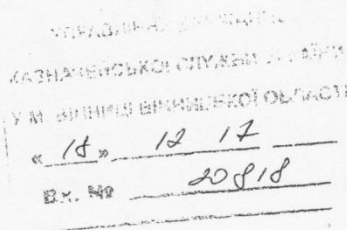 УПРАВЛІННЯ ДЕРЖАВНОЇ
КАЗНАЧЕЙСЬКОЇ СЛУЖБИ УКРАЇНИ
У М. ВІННИЦІ ВІННИЦЬКОЇ ОБЛАСТІ
« 18 » 12 17
Вх. № 20818